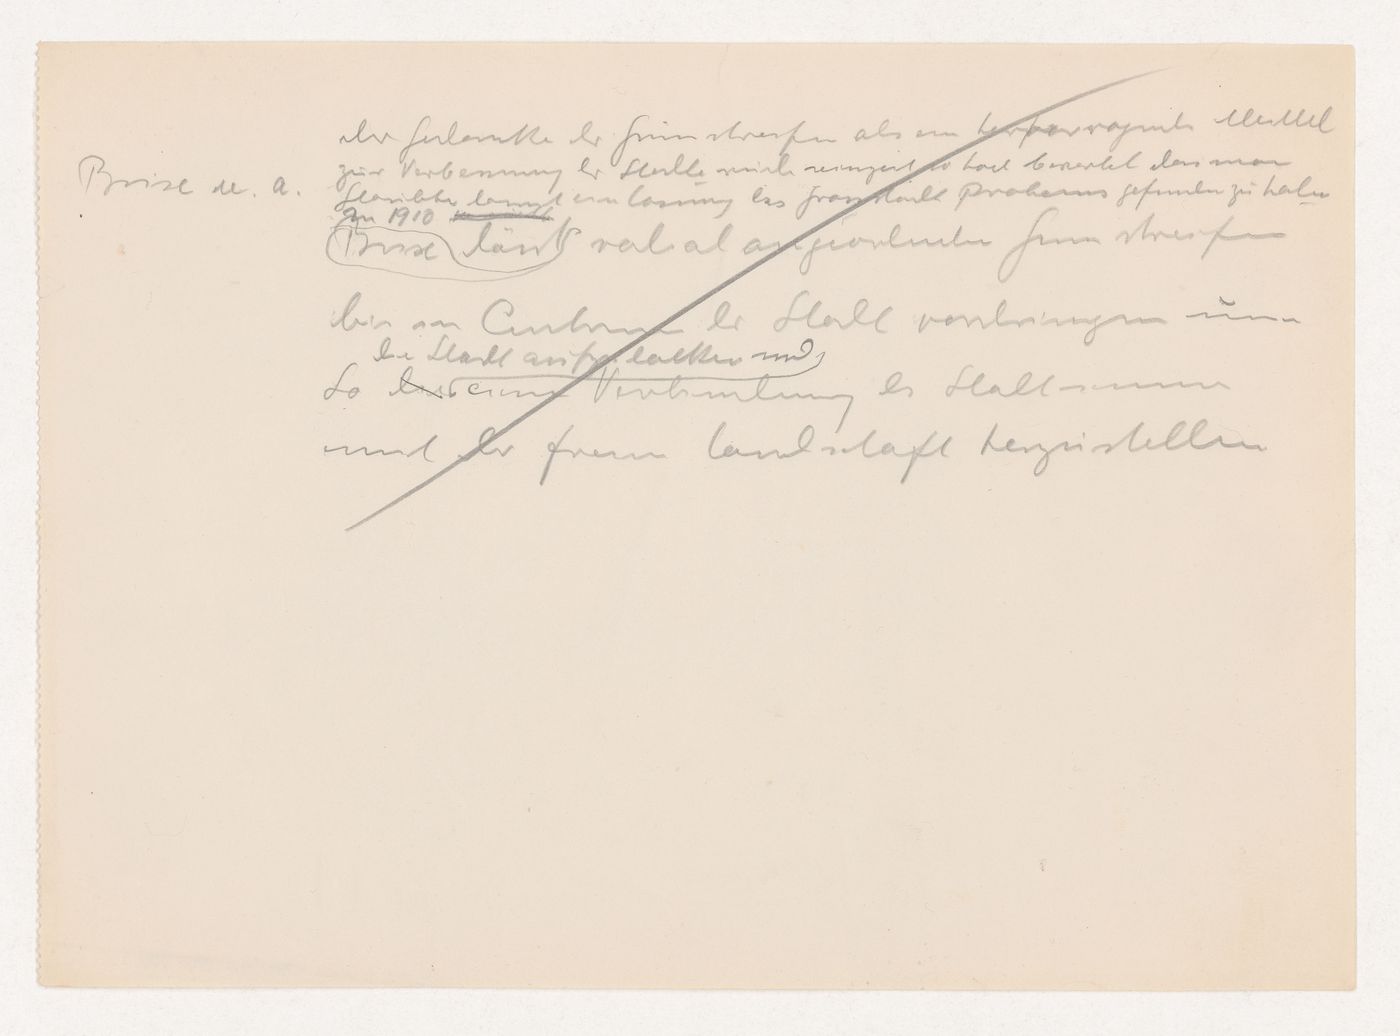 der Gedanke der Grünstreifen als ein hervorragendes Mittel
Boise u. a.
zur Verbesserung der Städte wurde seinzeit so hoch bewertet dass man
glaubte damit eine Lösung des Grossstadt Problems gefunden zu haben
In 1910
Boise lässt radial angeordnete Grünstreifen
bis im Centrum der Stadt vordringen um
die Stadt aufzulockern und
so eine Verbindung des Stadtinnern
mit der freien Landschaft herzustellen